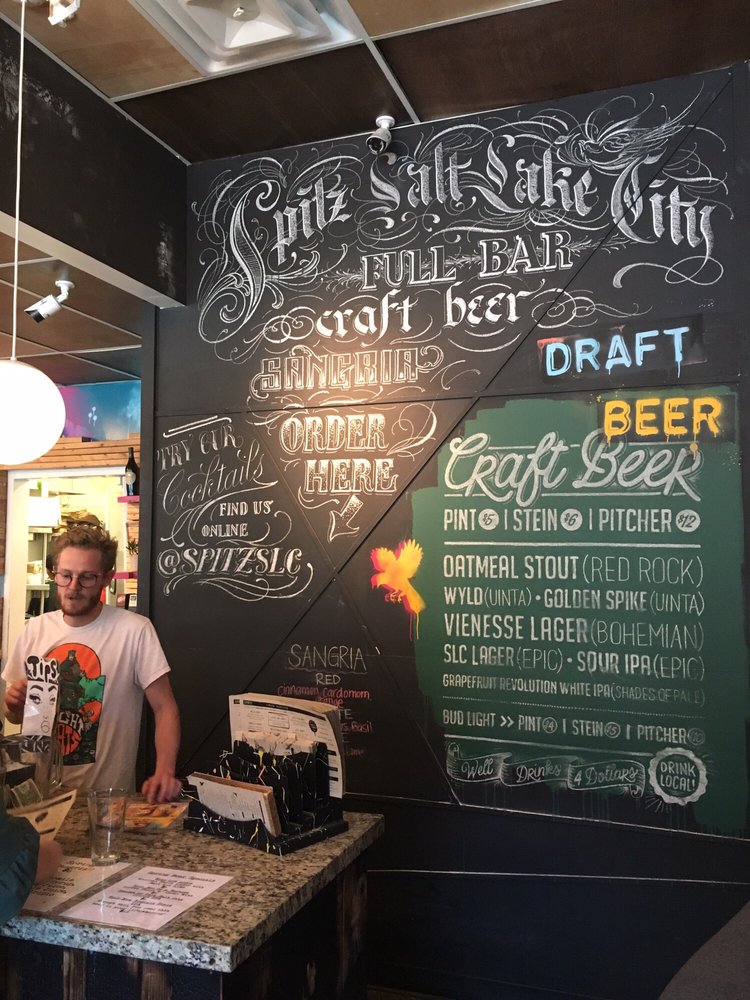 Spitz Salt Lake City
FULL BAR
craft beer
SANGRIA
ORDER
HERE
TRY OUR
Cocktails
FIND US
ONLINE
@SPITZSLC
DRAFT
BEER
Craft Beer
PINT $5 | STEIN $6 | PITCHER $12
OATMEAL STOUT (RED ROCK)
WYLD (UINTA) • GOLDEN SPIKE (UINTA)
VIENESSE LAGER (BOHEMIAN)
SLC LAGER (EPIC) • SOUR IPA (EPIC)
GRAPEFRUIT REVOLUTION WHITE IPA (SHADES OF PALE)
BUD LIGHT >> PINT $4 | STEIN $5 | PITCHER
Well Drinks 4 Dollars
DRINK
LOCAL!
SANGRIA
RED
Cinnamon Cardomom
Basil
TIPS